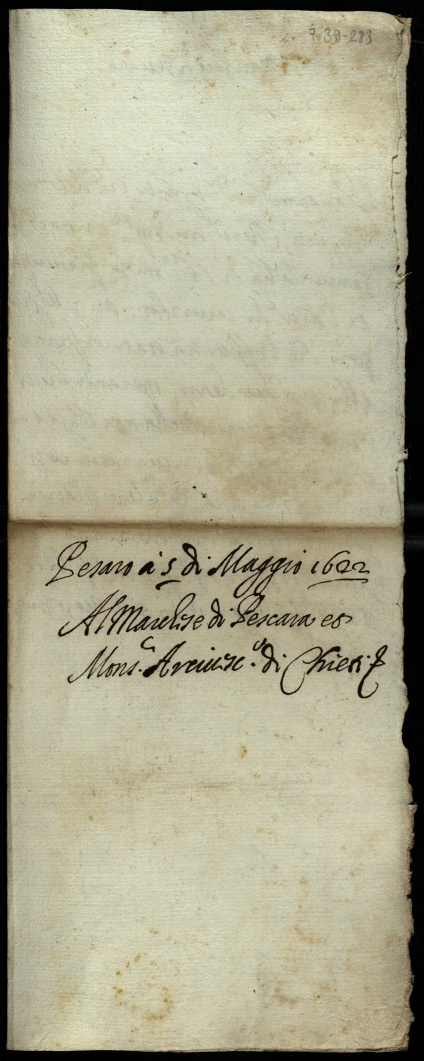 7 38-283
Pesaro à 5 di Maggio 1622
Al Marchse di Pescara et
Mons.r Arciuesc.o di Chieti